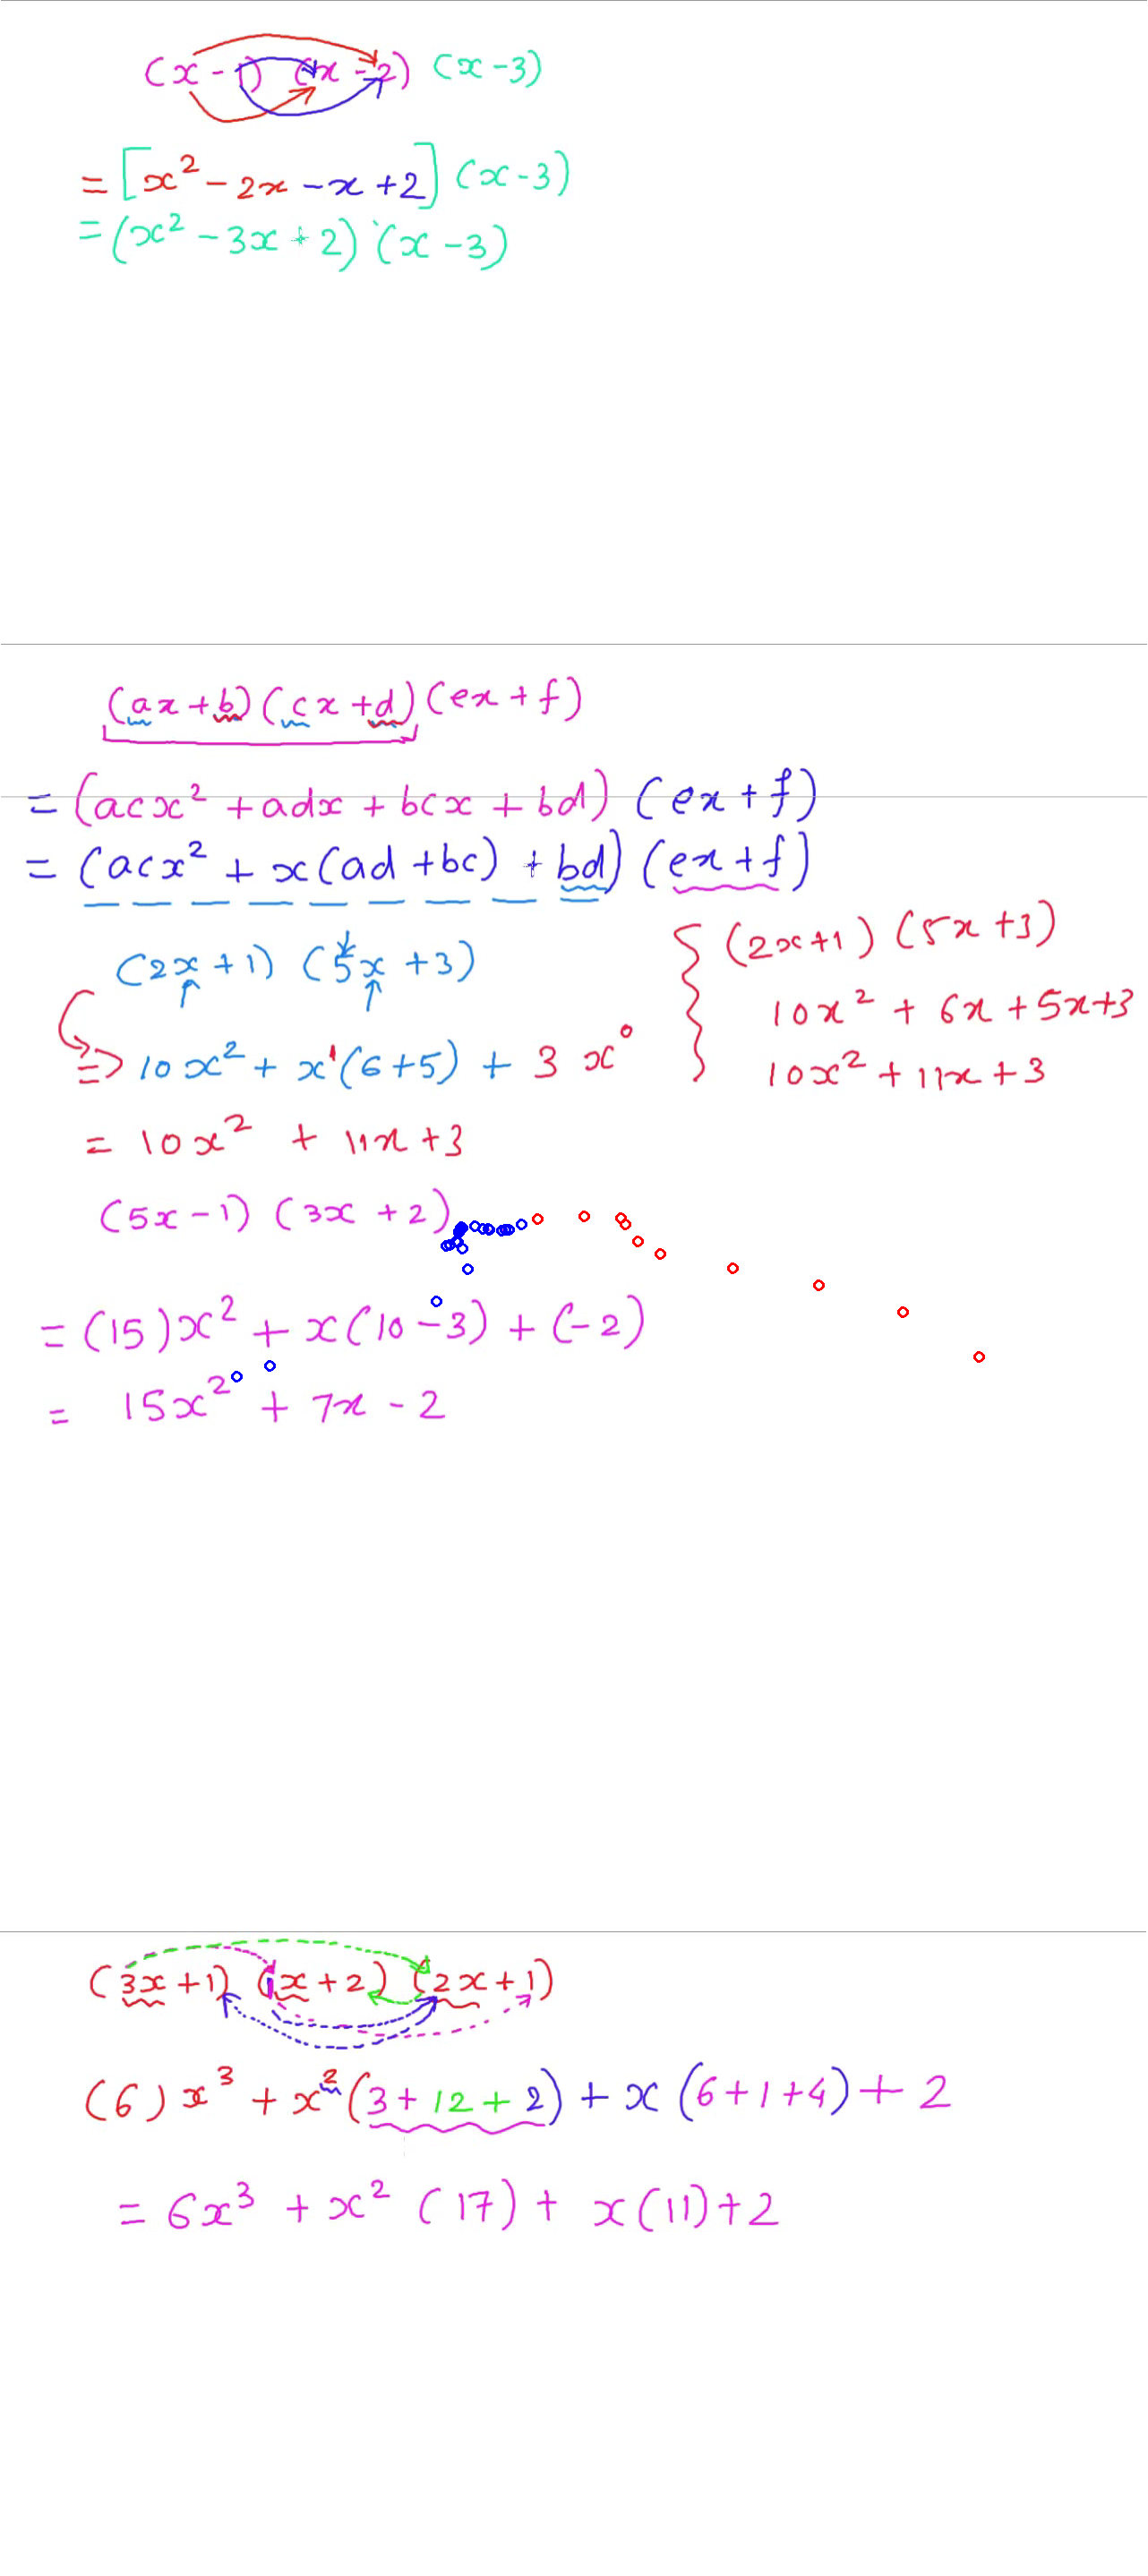 (x - 1) (x - 2) (x - 3)
= [x² - 2x - x + 2] (x - 3)
= (x² - 3x + 2) (x - 3)
(ax + b) (cx + d) (ex + f)
= (acx² + adx + bcx + bd) (ex + f)
= (acx² + x(ad + bc) + bd) (ex + f)
(2x + 1) (5x + 3)
=> 10x² + x¹(6 + 5) + 3x⁰
= 10x² + 11x + 3
{ (2x + 1) (5x + 3)
10x² + 6x + 5x + 3
10x² + 11x + 3
(5x - 1) (3x + 2)
= (15)x² + x(10 - 3) + (-2)
= 15x² + 7x - 2
(3x + 1) (x + 2) (2x + 1)
(6)x³ + x²(3 + 12 + 2) + x(6 + 1 + 4) + 2
= 6x³ + x² (17) + x(11) + 2